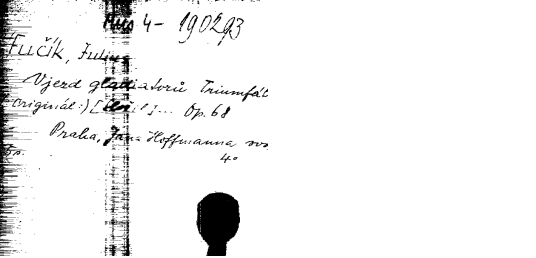 Mus 4 - 190293
FUČÍK, Julius
Vjezd gladiatorů Triumfál
originál:) [ ]... Op. 68
Praha, Jana Hoffmanna
4°